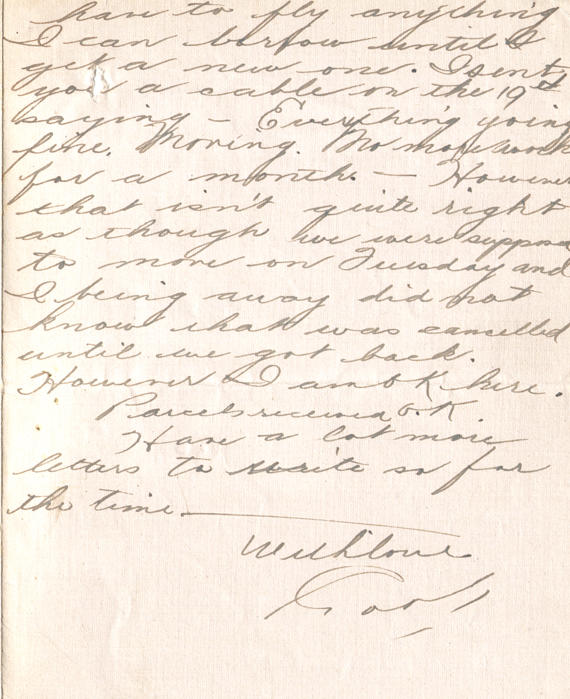 have to fly anything
I can borrow until I
get a new one. I sent
you a cable on the 19th
saying - Everything going
fine. Moving. No more work
for a month. - However
that isn't quite right
as though we were suppose
to move on Tuesday and
I being away did not
know that was cancelled
until we got back.
However I am OK here.
Parcels received O.K
Have a lot more
letters to write so for
the time
With love